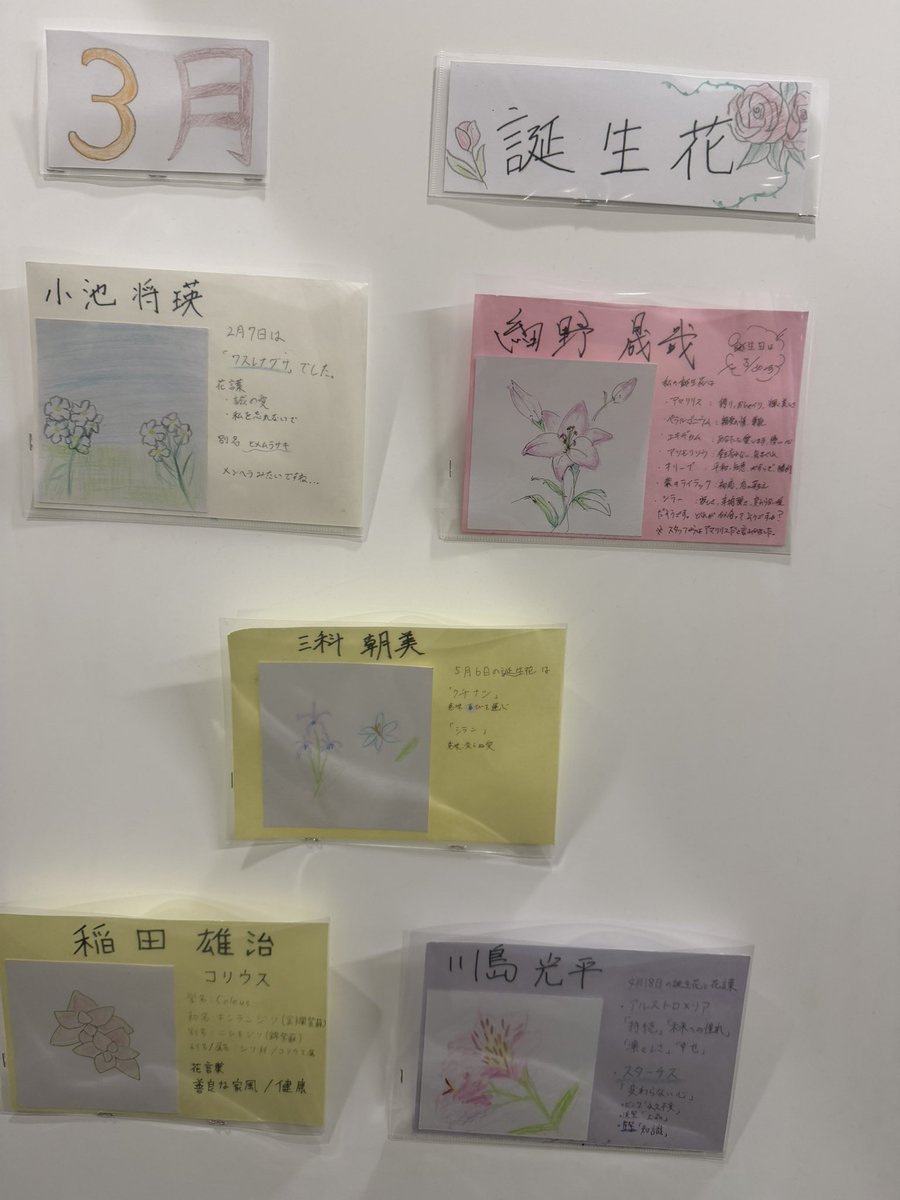 3月
誕生花
小池 将瑛
2月7日は
「ワスレナグサ」でした。
花言葉
・誠の愛
・私を忘れないで
別名 ヒメムラサキ
メンヘラみたいですね…
細野 晟哉
誕生日は
私の誕生花は
・アマリリス : 誇り、おしゃべり、輝く美しさ
・ペラルゴニウム :
・オリーブ : 平和、知恵
・シラー :
※スタッフからはアマリリスだと言われました。
三科 朝美
5月6日の誕生花は
「シラン」
稲田 雄治
コリウス
学名:Coleus
和名:キンランジソ(金襴紫蘇)
別名:ニシキジソ(錦紫蘇)
シソ科/コリウス属
花言葉
善良な家風/健康
川島 光平
4月18日の誕生花と花言葉
・アルストロメリア
「持続」「未来への憧れ」
「凛々しさ」「幸せ」
・スターチス
「変わらない心」
・ピンク「永久不変」
「知識」